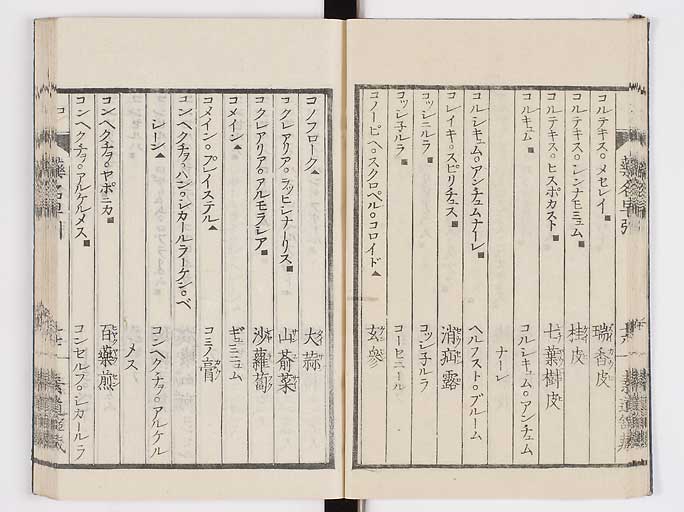 コルテキス。メセレイ■ 瑞香皮
コルテキス。シンナモミュム■ 桂皮
コルテキス。ヒスポカスト■ 七葉樹皮
コルキュム■ コルシキュム。アンチュム
ナーレ
コルシキュム。アンチュムナーレ■ ヘルフスト。ブルーム
コレイキ。スピリチュス■ 消疝露
コッシニルラ■ コッシ子ルラ
コッシ子ルラ■ コーセニール
コノーピヘ。スクロペル。コロイド▲ 玄參
コノフローク▲ 大蒜
コクレアリア。ラッヒシナーリス■ 山葥菜
コクレアリア。アルモラシア■ 沙蘿蔔
コメイン▲ ギュミニュム
コメイン。プレイステル▲ コミノ膏
コンヘクチヲ。ハン。シカールラーケン。ベ
シーン▲ コンヘクチヲ。アルケル
メス
コンヘクチヲ。ヤポニカ■ 百藥煎
コンヘクチヲ。アルケルメス■ コンセルフ。シカールラ